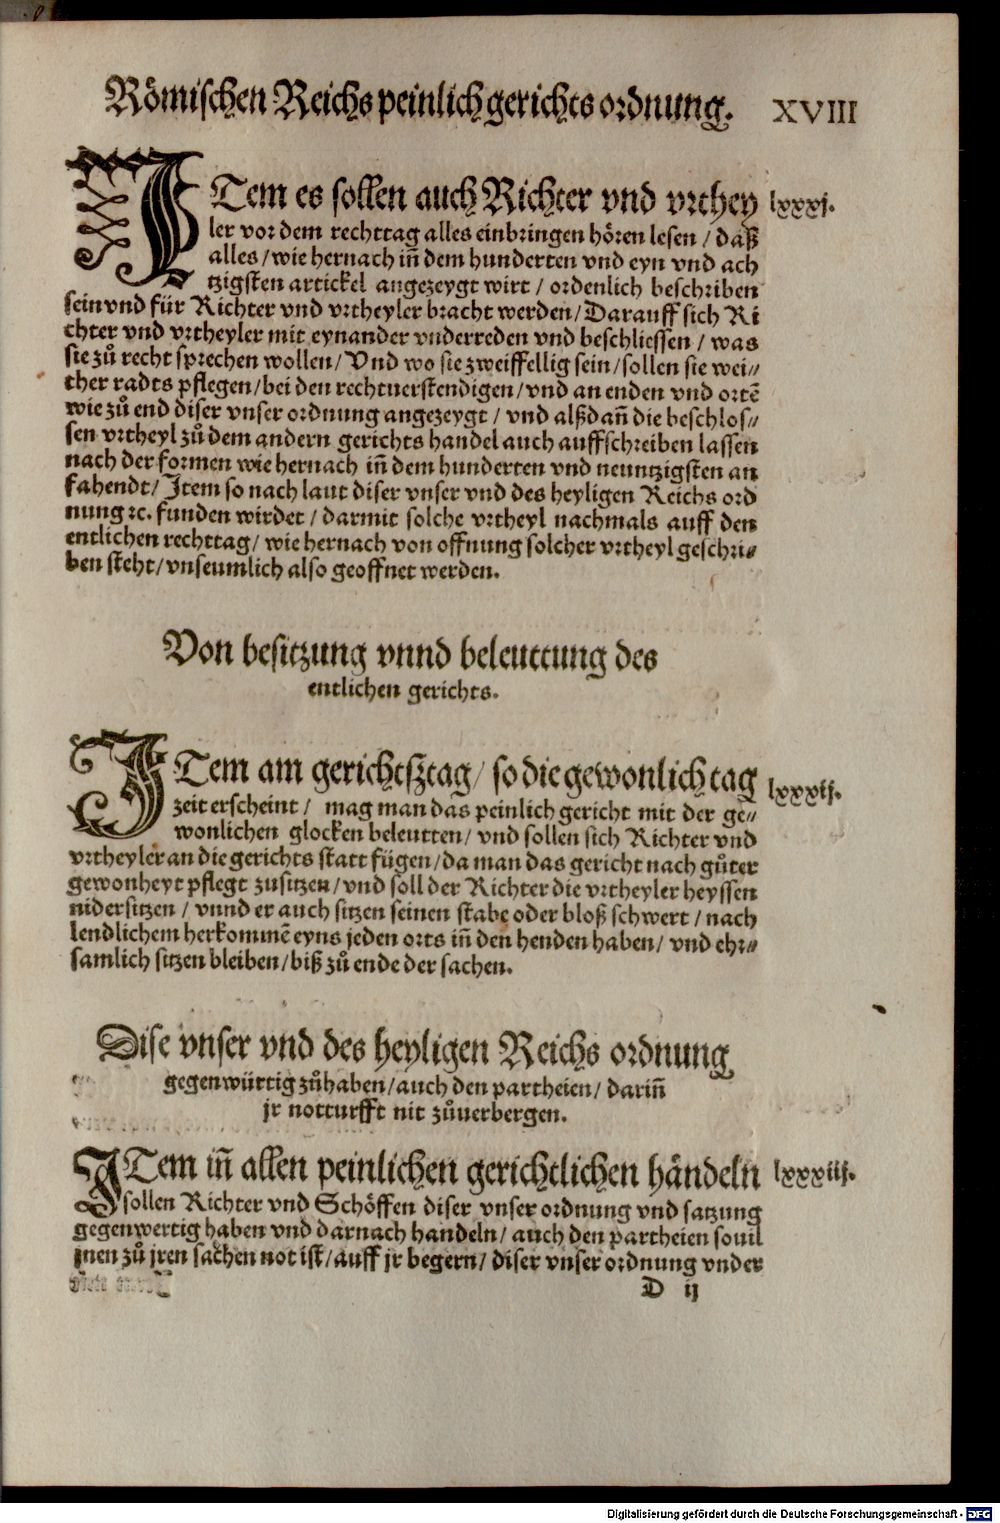 Römischen Reichs peinlich gerichts ordnung. XVIII
ITem es sollen auch Richter vnd vrthey lxxxj.
ler vor dem rechttag alles einbringen hören lesen / daß
alles / wie hernach iñ dem hunderten vnd eyn vnd ach
tzigsten artickel angezeygt wirt / ordenlich beschriben
sein vnd für Richter vnd vrtheyler bracht werden / Darauff sich Ri
chter vnd vrtheyler mit eynander vnderreden vnd beschliessen / was
sie zů recht sprechen wollen / Vnd wo sie zweiffellig sein / sollen sie wei⸗
ther radts pflegen / bei den rechtuerstendigen / vnd an enden vnd ortē
wie zů end diser vnser ordnung angezeygt / vnd alßdañ die beschlos⸗
sen vrtheyl zů dem andern gerichts handel auch auffschreiben lassen
nach der formen wie hernach iñ dem hunderten vnd neuntzigsten an
fahendt / Item so nach laut diser vnser vnd des heyligen Reichs ord
nung ꝛc. funden wirdet / darmit solche vrtheyl nachmals auff den
entlichen rechttag / wie hernach von offnung solcher vrtheyl geschri⸗
ben steht / vnseumlich also geoffnet werden.
Von besitzung vnnd beleuttung des
entlichen gerichts.
ITem am gerichtsztag / so die gewonlich tag lxxxij.
zeit erscheint / mag man das peinlich gericht mit der ge⸗
wonlichen glocken beleutten / vnd sollen sich Richter vnd
vrtheyler an die gerichts statt fügen / da man das gericht nach gůter
gewonheyt pflegt zusitzen / vnd soll der Richter die vrtheyler heyssen
nidersitzen / vnnd er auch sitzen seinen stabe oder bloß schwert / nach
lendlichem herkommē eyns jeden orts iñ den henden haben / vnd ehr⸗
samlich sitzen bleiben / biß zů ende der sachen.
Dise vnser vnd des heyligen Reichs ordnung
gegenwürtig zůhaben / auch den partheien / dariñ
jr notturfft nit zůuerbergen.
ITem iñ allen peinlichen gerichtlichen händeln lxxxiij.
sollen Richter vnd Schöffen diser vnser ordnung vnd satzung
gegenwertig haben vnd darnach handeln / auch den partheien souil
jnen zů jren sachen not ist / auff jr begern / diser vnser ordnung vnder
D ij
Digitalisierung gefördert durch die Deutsche Forschungsgemeinschaft - DFG